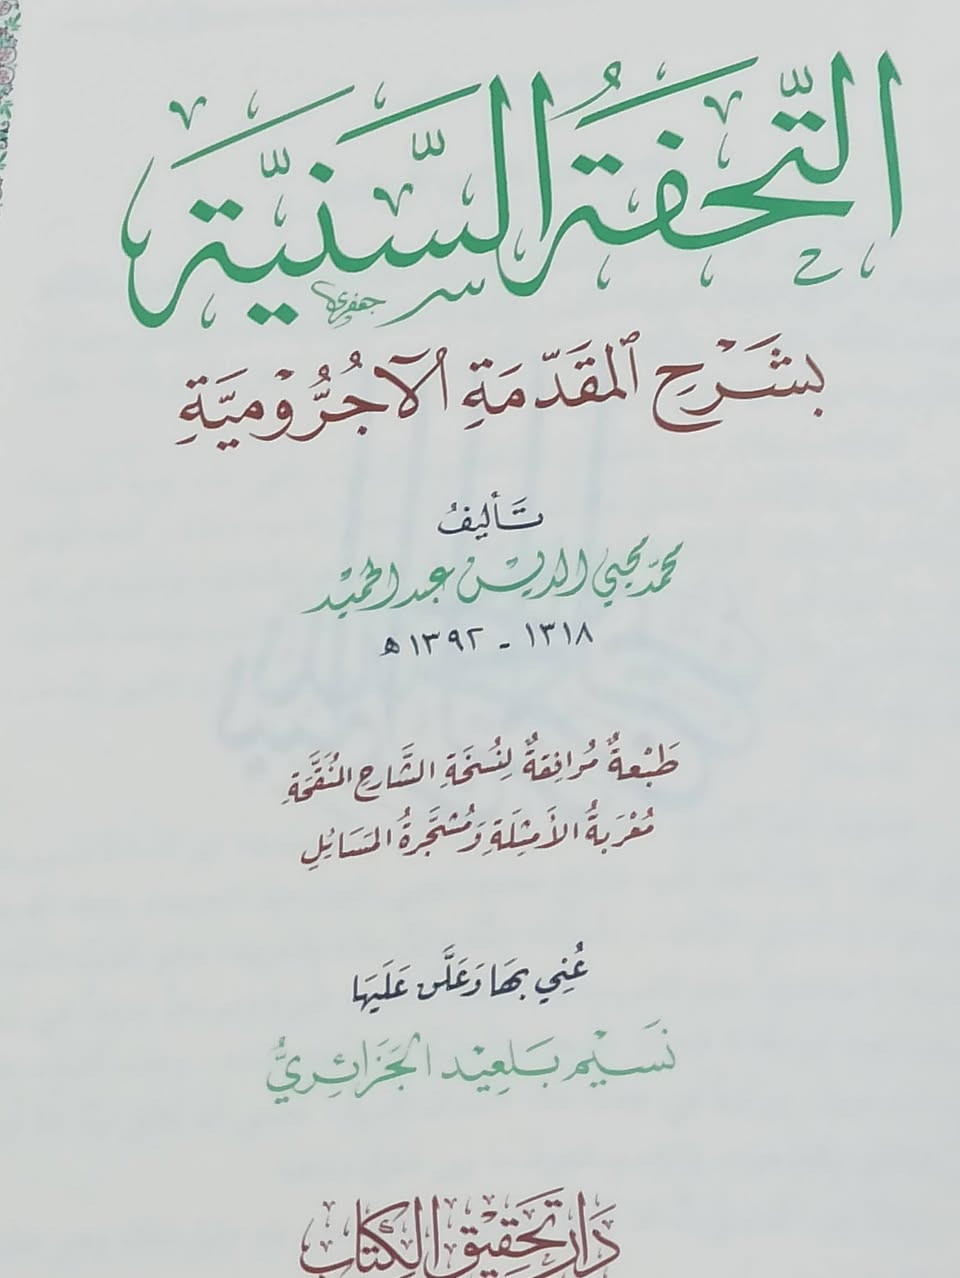 التُّحْفَةُ السَّنِيَّةِ
بِشَرْحِ المُقَدِّمَةِ الآجُرُّومِيَّةِ
تَأليفُ
محمّد محيي الدين عبد الحميد
١٣١٨ - ١٣٩٢ هـ
طَبْعَةٌ مُرافِقةٌ لِنُسخَةِ الشَّارِحِ المُنَقَّحَةِ
مُعْرَبةُ الأَمثِلَةِ وَمُشَجَّرةُ المَسَائِلِ
عُنِي بهَا وَعَلَّق عَلَيهَا
نَسِيْم بَلعِيْد الجَزَائِرِيُّ
دَار تَحقِيْق الكِتَاب